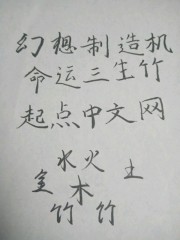 幻想制造机
命运三生竹
起点中文网
水火
金木土
竹竹